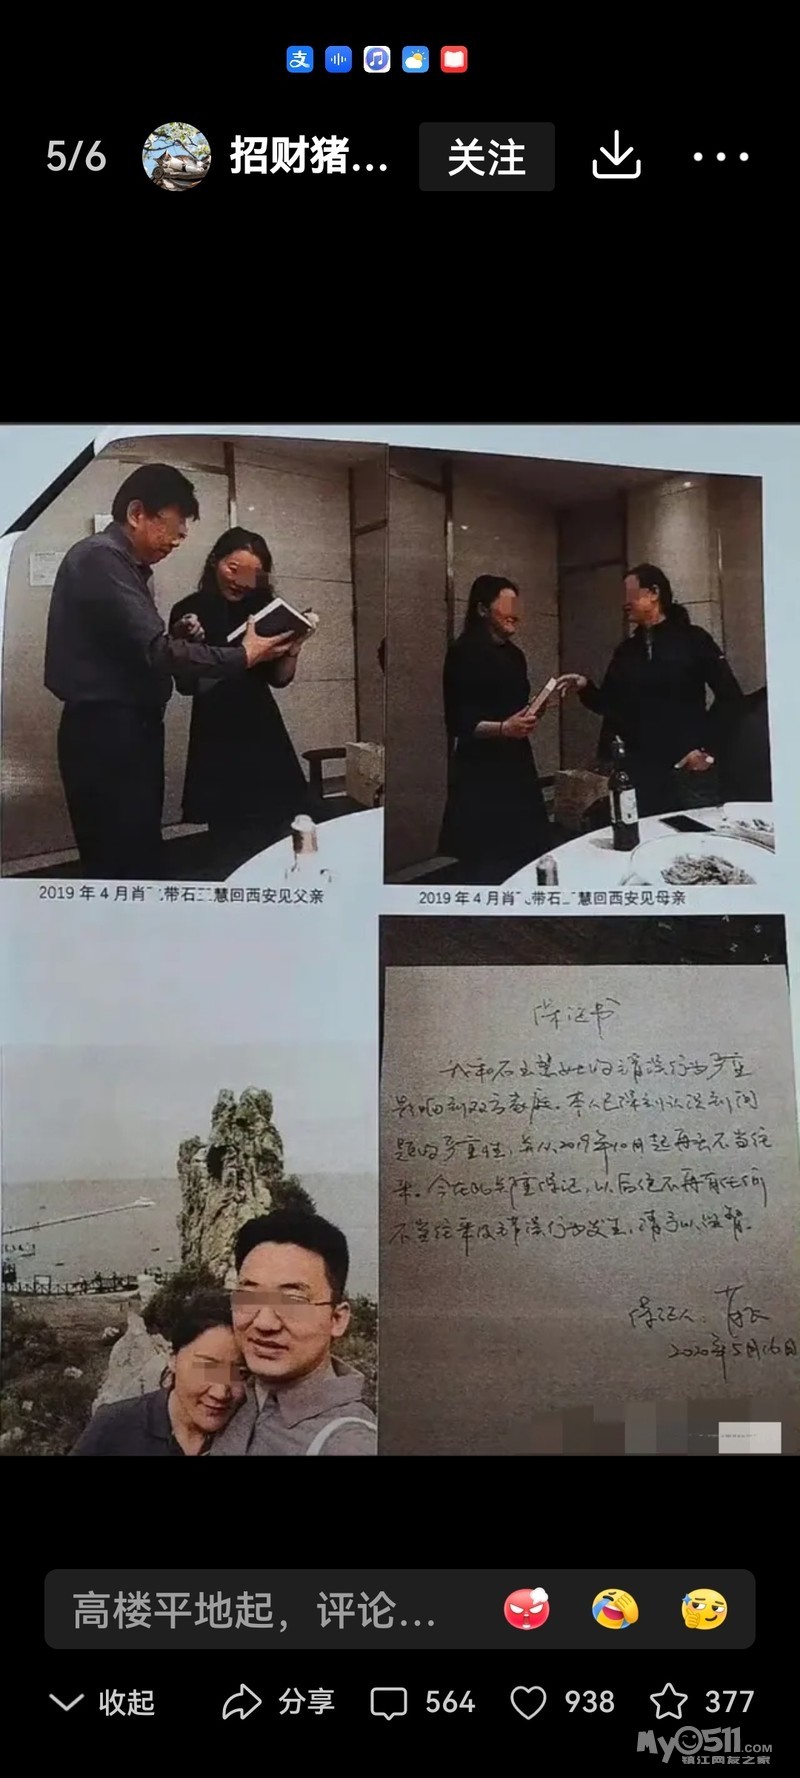 支
5/6
招财猪...
关注
2019年4月肖 带石 慧回西安见父亲
2019年4月肖 带石 慧回西安见母亲
保证书
我和石 慧女士的错误行为严重
影响到双方家庭。本人已深刻认识到问
题的严重性,并从2019年10月起再无不当往
来。今在此郑重保证,以后绝不再有任何
不当往来及错误行为发生,请予以监督。
保证人:肖
2020年5月16日
高楼平地起,评论...
收起
分享
564
938
377
My0511.COM
镇江网友之家